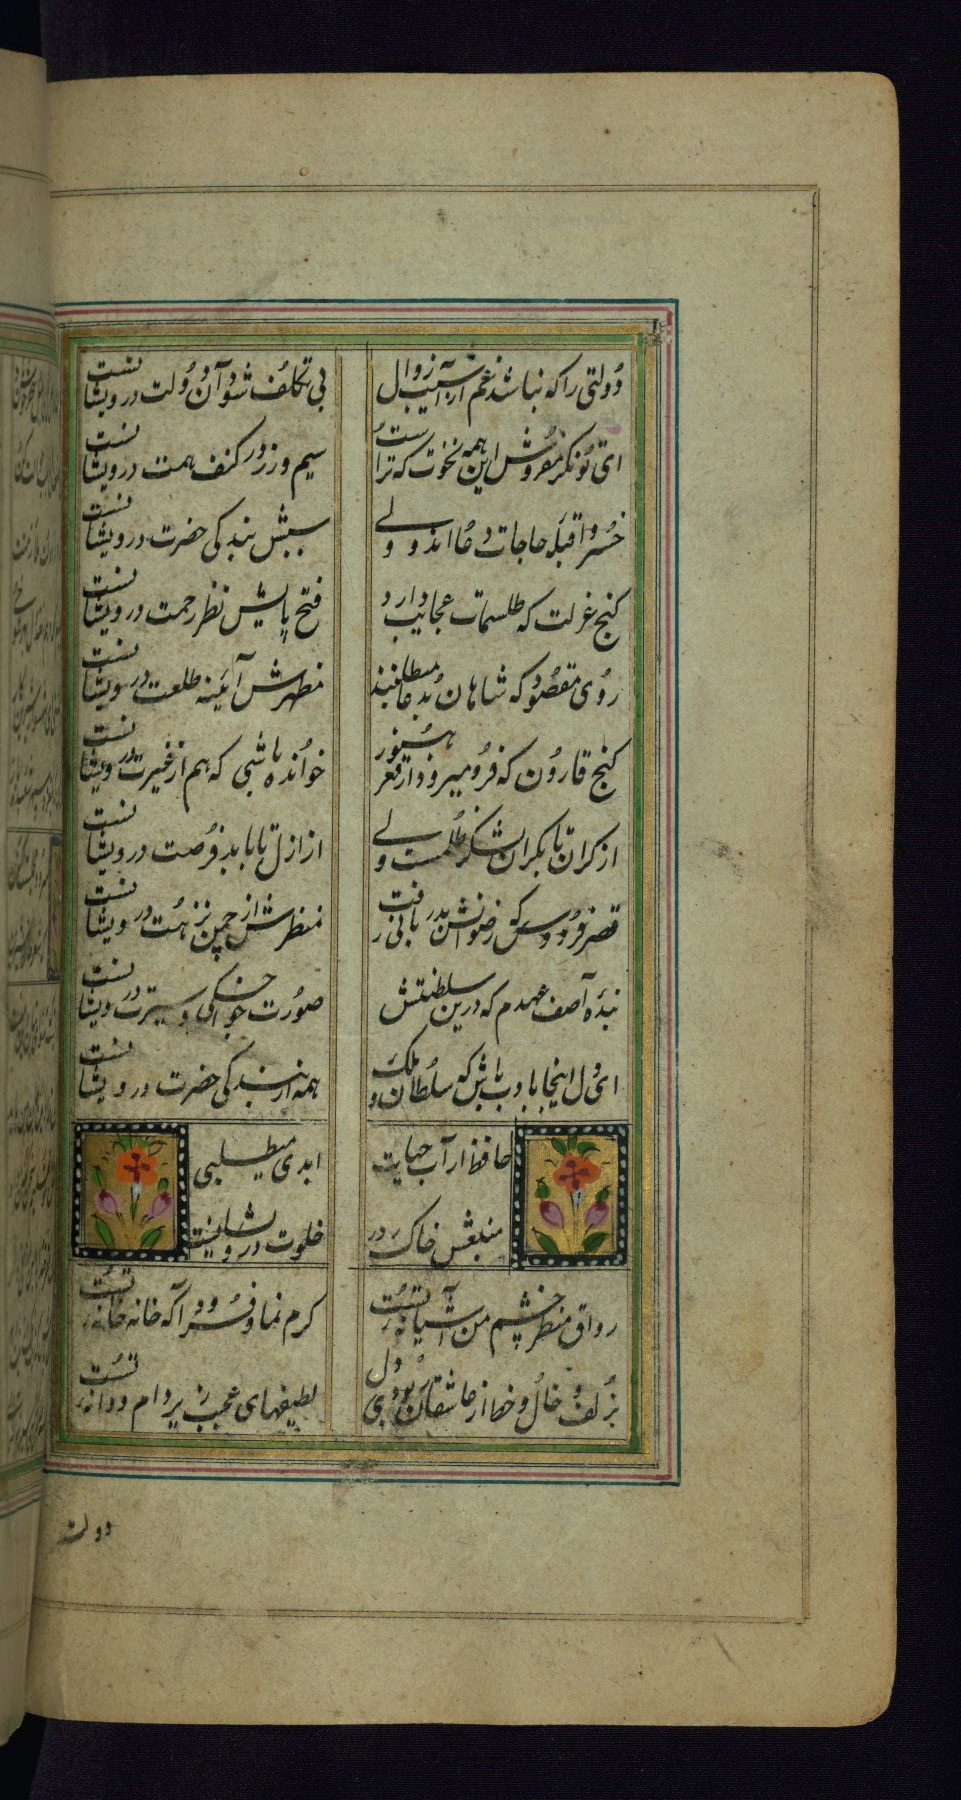 دولتی را که نباشد غم از آسیب زوال
بی تکلف شنو آن دولت درویشانست
ای تونکر مفروش این همه نخوت که ترا است
سیم و زر در کنف همت درویشانست
خسروا قبله حاجات دعااند ولے
سببش بندکی حضرت درویشانست
کنج عزلت که طلسمات عجایب دارد
فتح پایش نظر رحمت درویشانست
روی مقصود که شاهان بدعا میطلبند
مظهرش آئینه طلعت درویشانست
کنج قارون که فرو میرود از قعر هنوز
خوانده باشی که هم از غیرت درویشانست
از کران تا بکران لشکر ظلمست ولے
از ازل تا بابد فرصت درویشانست
قصر فردوس که رضوانش بدربانی رفت
منظرش از چمن نزهت درویشانست
بنده آصف عهدم که درین سلطنتش
صورت خواجکی و سیرت درویشانست
ای دل اینجا باادب باش که سلطان و ملک
همه از بندکی حضرت درویشانست
حافظ ار آب حیات
ابدی میطلبی
منبعش خاک در
خلوت درویشانست
رواق منظر چشم من آشیانه تست
کرم نما و فرود آ که خانه خانه تست
بزلف و خال و خط از عاشقان ربودی دل
لطیفهای عجب زیر دام و دانه تست